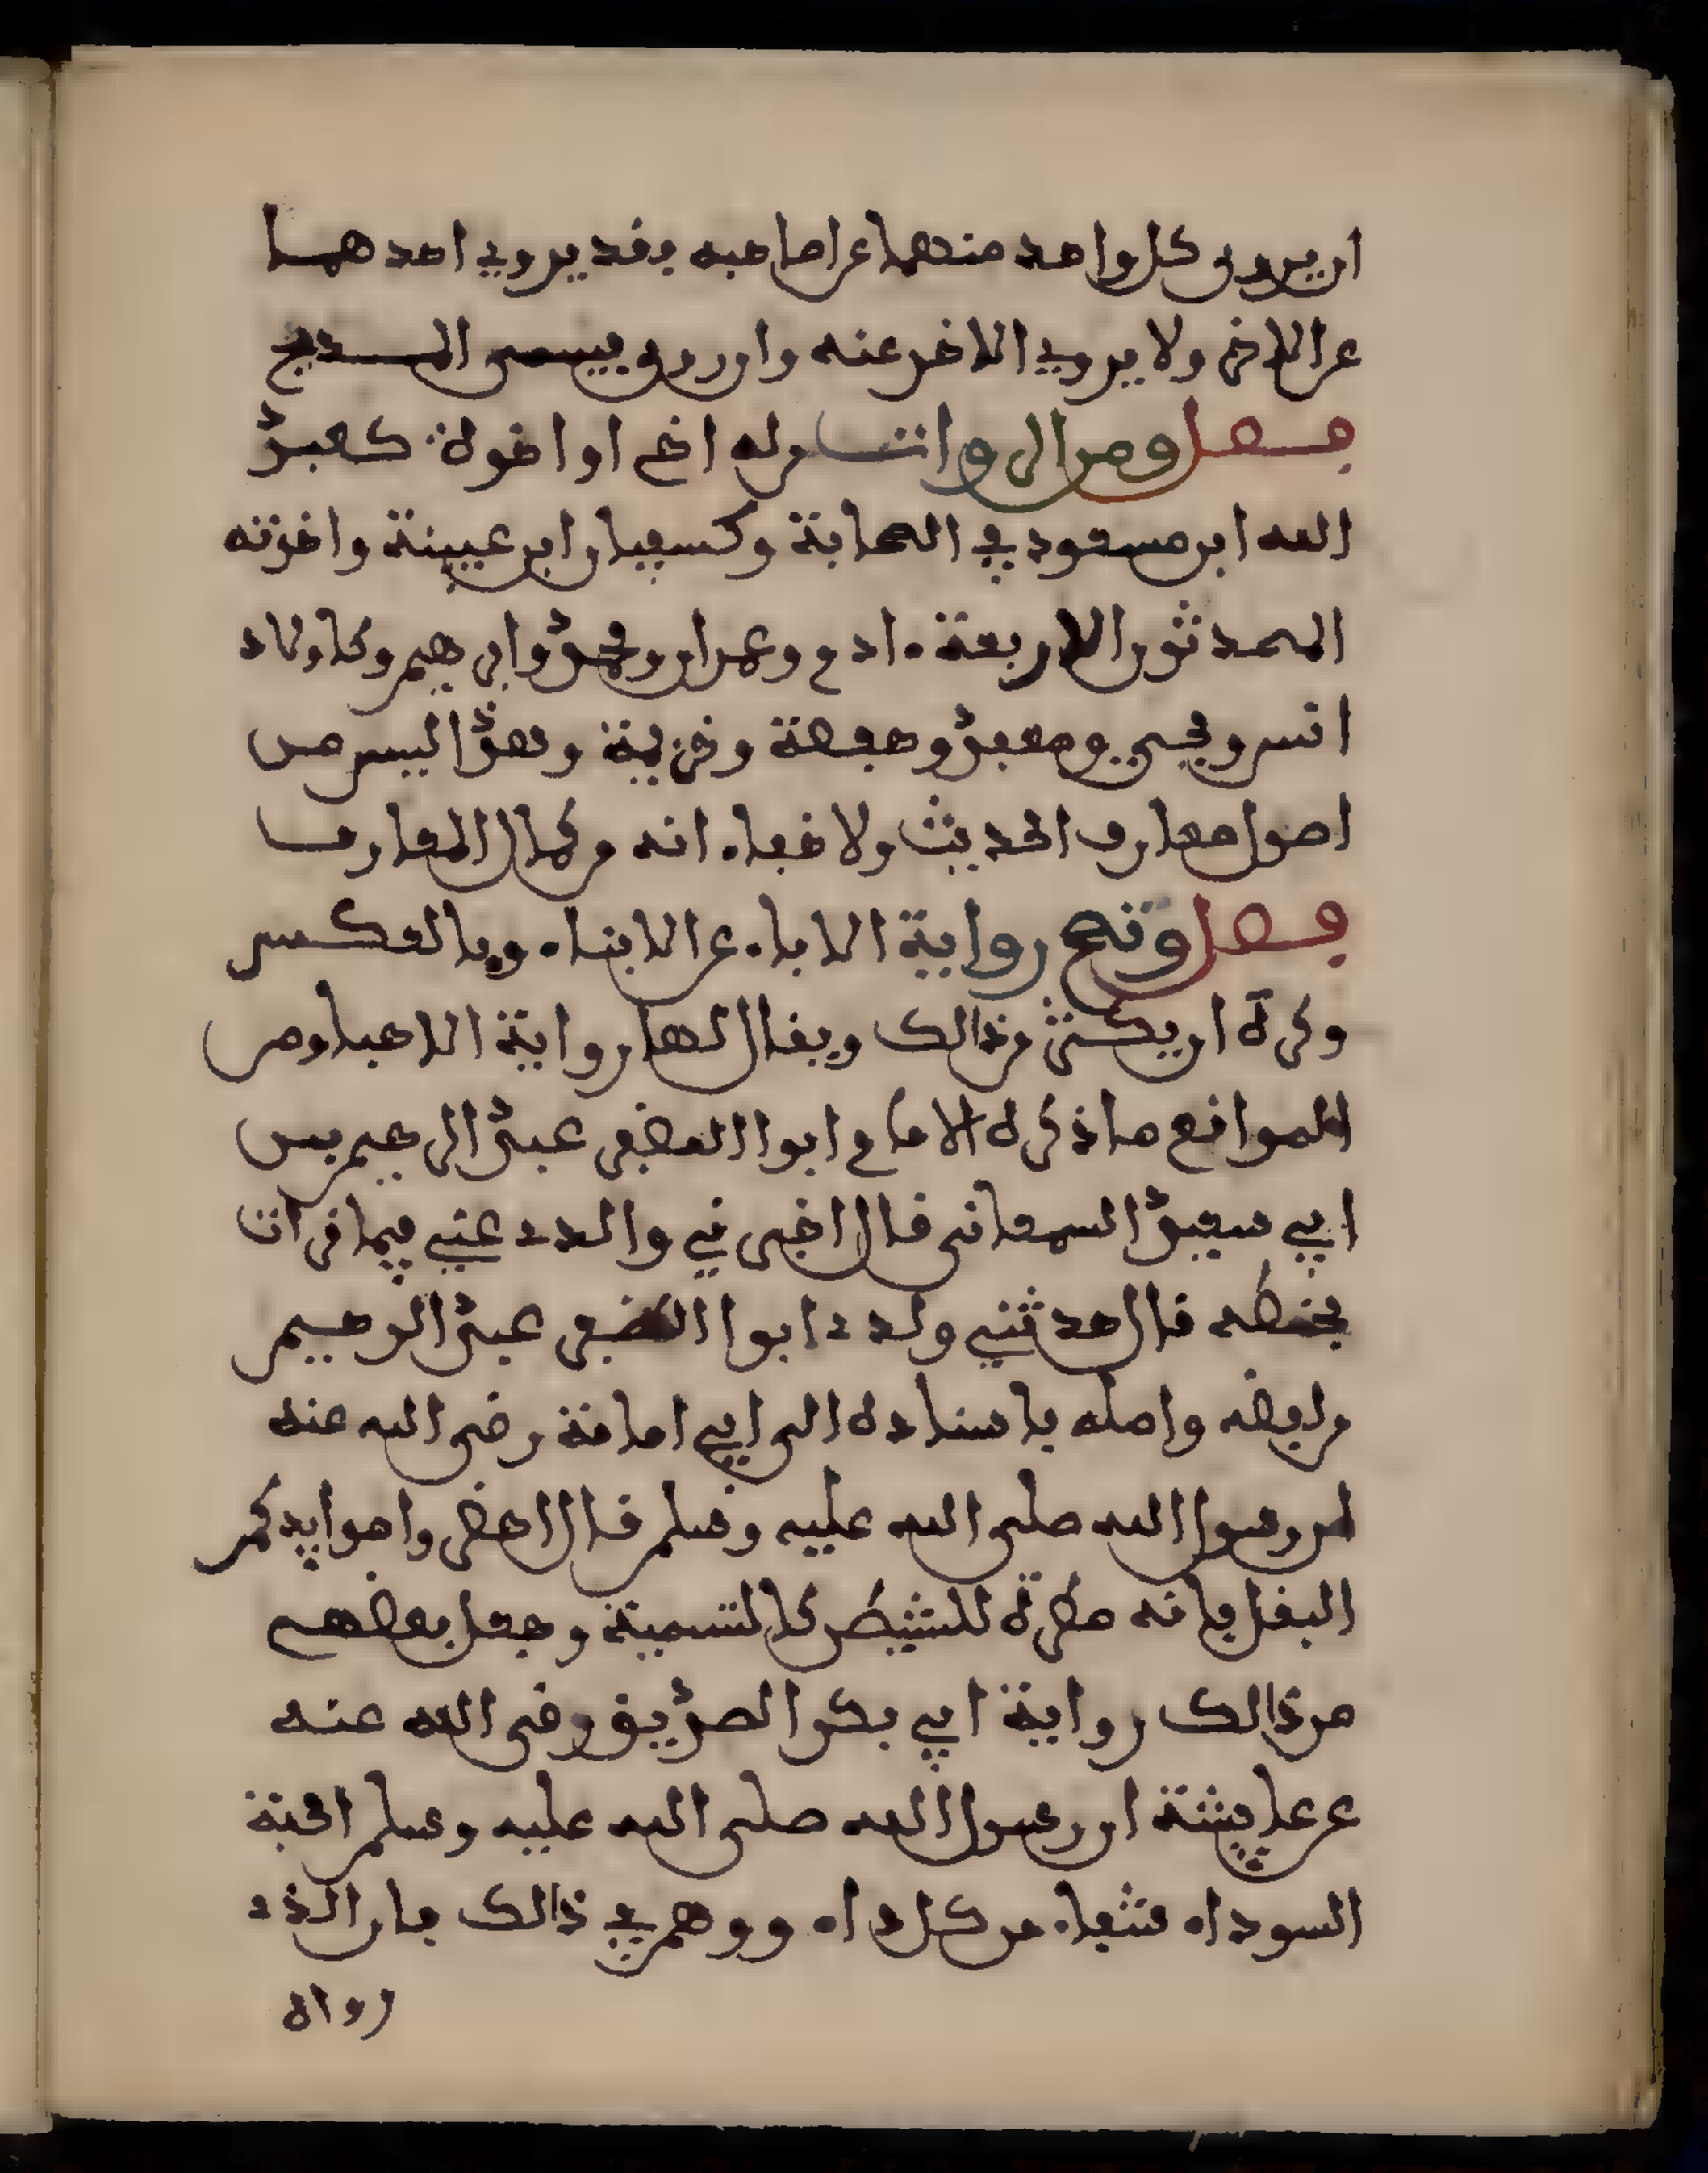 ان يروي كل واحد منهما عن صاحبه فقد يروي احدهما
عن الاخر ولا يروي الاخر عنه وان روى فيسمى المديج
فصل ومن الرواة من له اخ او اخوة كعبد
الله ابن مسعود في الصحابة وكسفيان ابن عيينة واخوته
المحدثون الاربعة ادم وعمران ومحمد وابرهيم وكاولاد
انس ويحيى ومعبد وحفصة وكريمة وهذا ليس من
اصول معارف الحديث ولا خفاء انه من كمال المعارف
فصل وتصح رواية الاباء عن الابناء وبالعكس
وكره ان يكثر من ذالك ويقال لها رواية الاعيا ومن
المواقع ما ذكره الامام ابوا المظفر عبد الرحيم بن
ابي سعيد السمعاني قال اخبرني والدي عني فيما قرات
بخطه قال حدثني ولدي ابوا المظفر عبد الرحيم
من لفظه واصله باسناده الى ابي امامة رضي الله عنه
ان رسول الله صلى الله عليه وسلم قال احضروا موايدكم
البقل فانه مطردة للشيطن كالتسمية وجعل بعضهم
من ذالك رواية ابي بكر الصديق رضي الله عنه
عن عايشة ان رسول الله صلى الله عليه وسلم الحبة
السوداء شفاء من كل داء ووهم في ذالك فان الذي
رواه